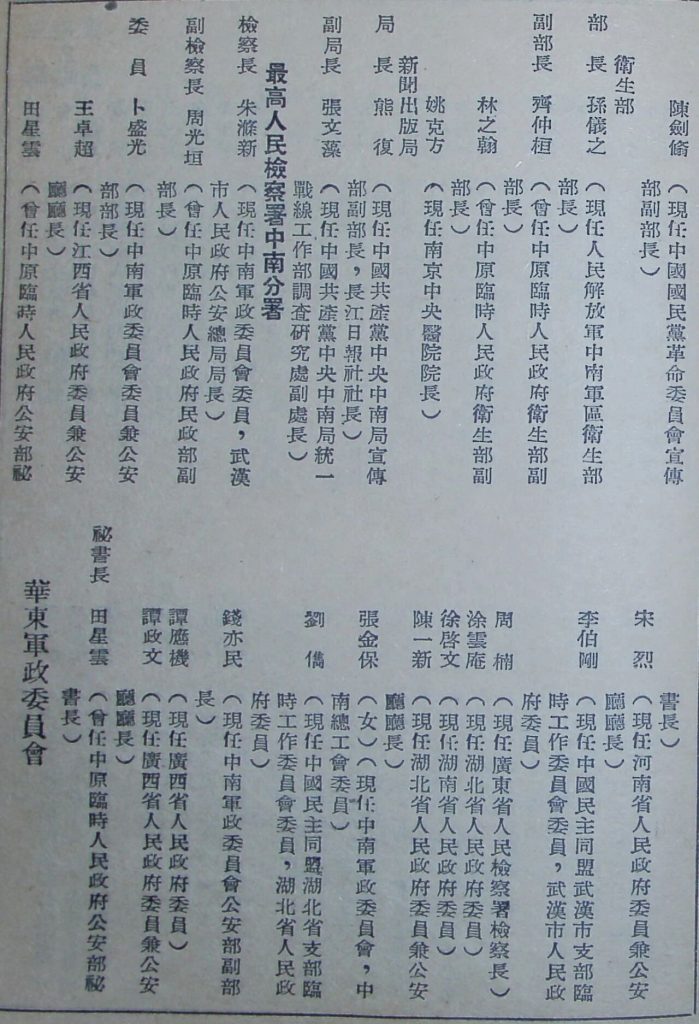 陳劍翛（現任中國國民黨革命委員會宣傳
部副部長）
衛生部
部　長　孫儀之（現任人民解放軍中南軍區衛生部
部長）
副部長　齊仲桓（曾任中原臨時人民政府衛生部副
部長）
林之翰（曾任中原臨時人民政府衛生部副
部長）
姚克方（現任南京中央醫院院長）
新聞出版局
局　長　熊　復（現任中國共產黨中央中南局宣傳
部副部長，長江日報社社長）
副局長　張文藻（現任中國共產黨中央中南局統一
戰線工作部調查研究處副處長）
最高人民檢察署中南分署
檢察長　朱滌新（現任中南軍政委員會委員，武漢
市人民政府公安總局局長）
副檢察長　周光垣（曾任中原臨時人民政府民政部副
部長）
委　員　卜盛光（現任中南軍政委員會委員兼公安
部部長）
王卓超（現任江西省人民政府委員兼公安
廳廳長）
田星雲（曾任中原臨時人民政府公安部祕
書長）
宋　烈（現任河南省人民政府委員兼公安
廳廳長）
李伯剛（現任中國民主同盟武漢市支部臨
時工作委員會委員，武漢市人民政
府委員）
周　楠（現任廣東省人民檢察署檢察長）
涂雲庵（現任湖北省人民政府委員）
徐啓文（現任湖南省人民政府委員）
陳一新（現任湖北省人民政府委員兼公安
廳廳長）
張金保（女）（現任中南軍政委員會，中
南總工會委員）
劉　僑（現任中國民主同盟湖北省支部臨
時工作委員會委員，湖北省人民政
府委員）
錢亦民（現任中南軍政委員會公安部副部
長）
譚應機（現任廣西省人民政府委員）
譚政文（現任廣西省人民政府委員兼公安
廳廳長）
祕書長　田星雲（曾任中原臨時人民政府公安部祕
書長）
華東軍政委員會